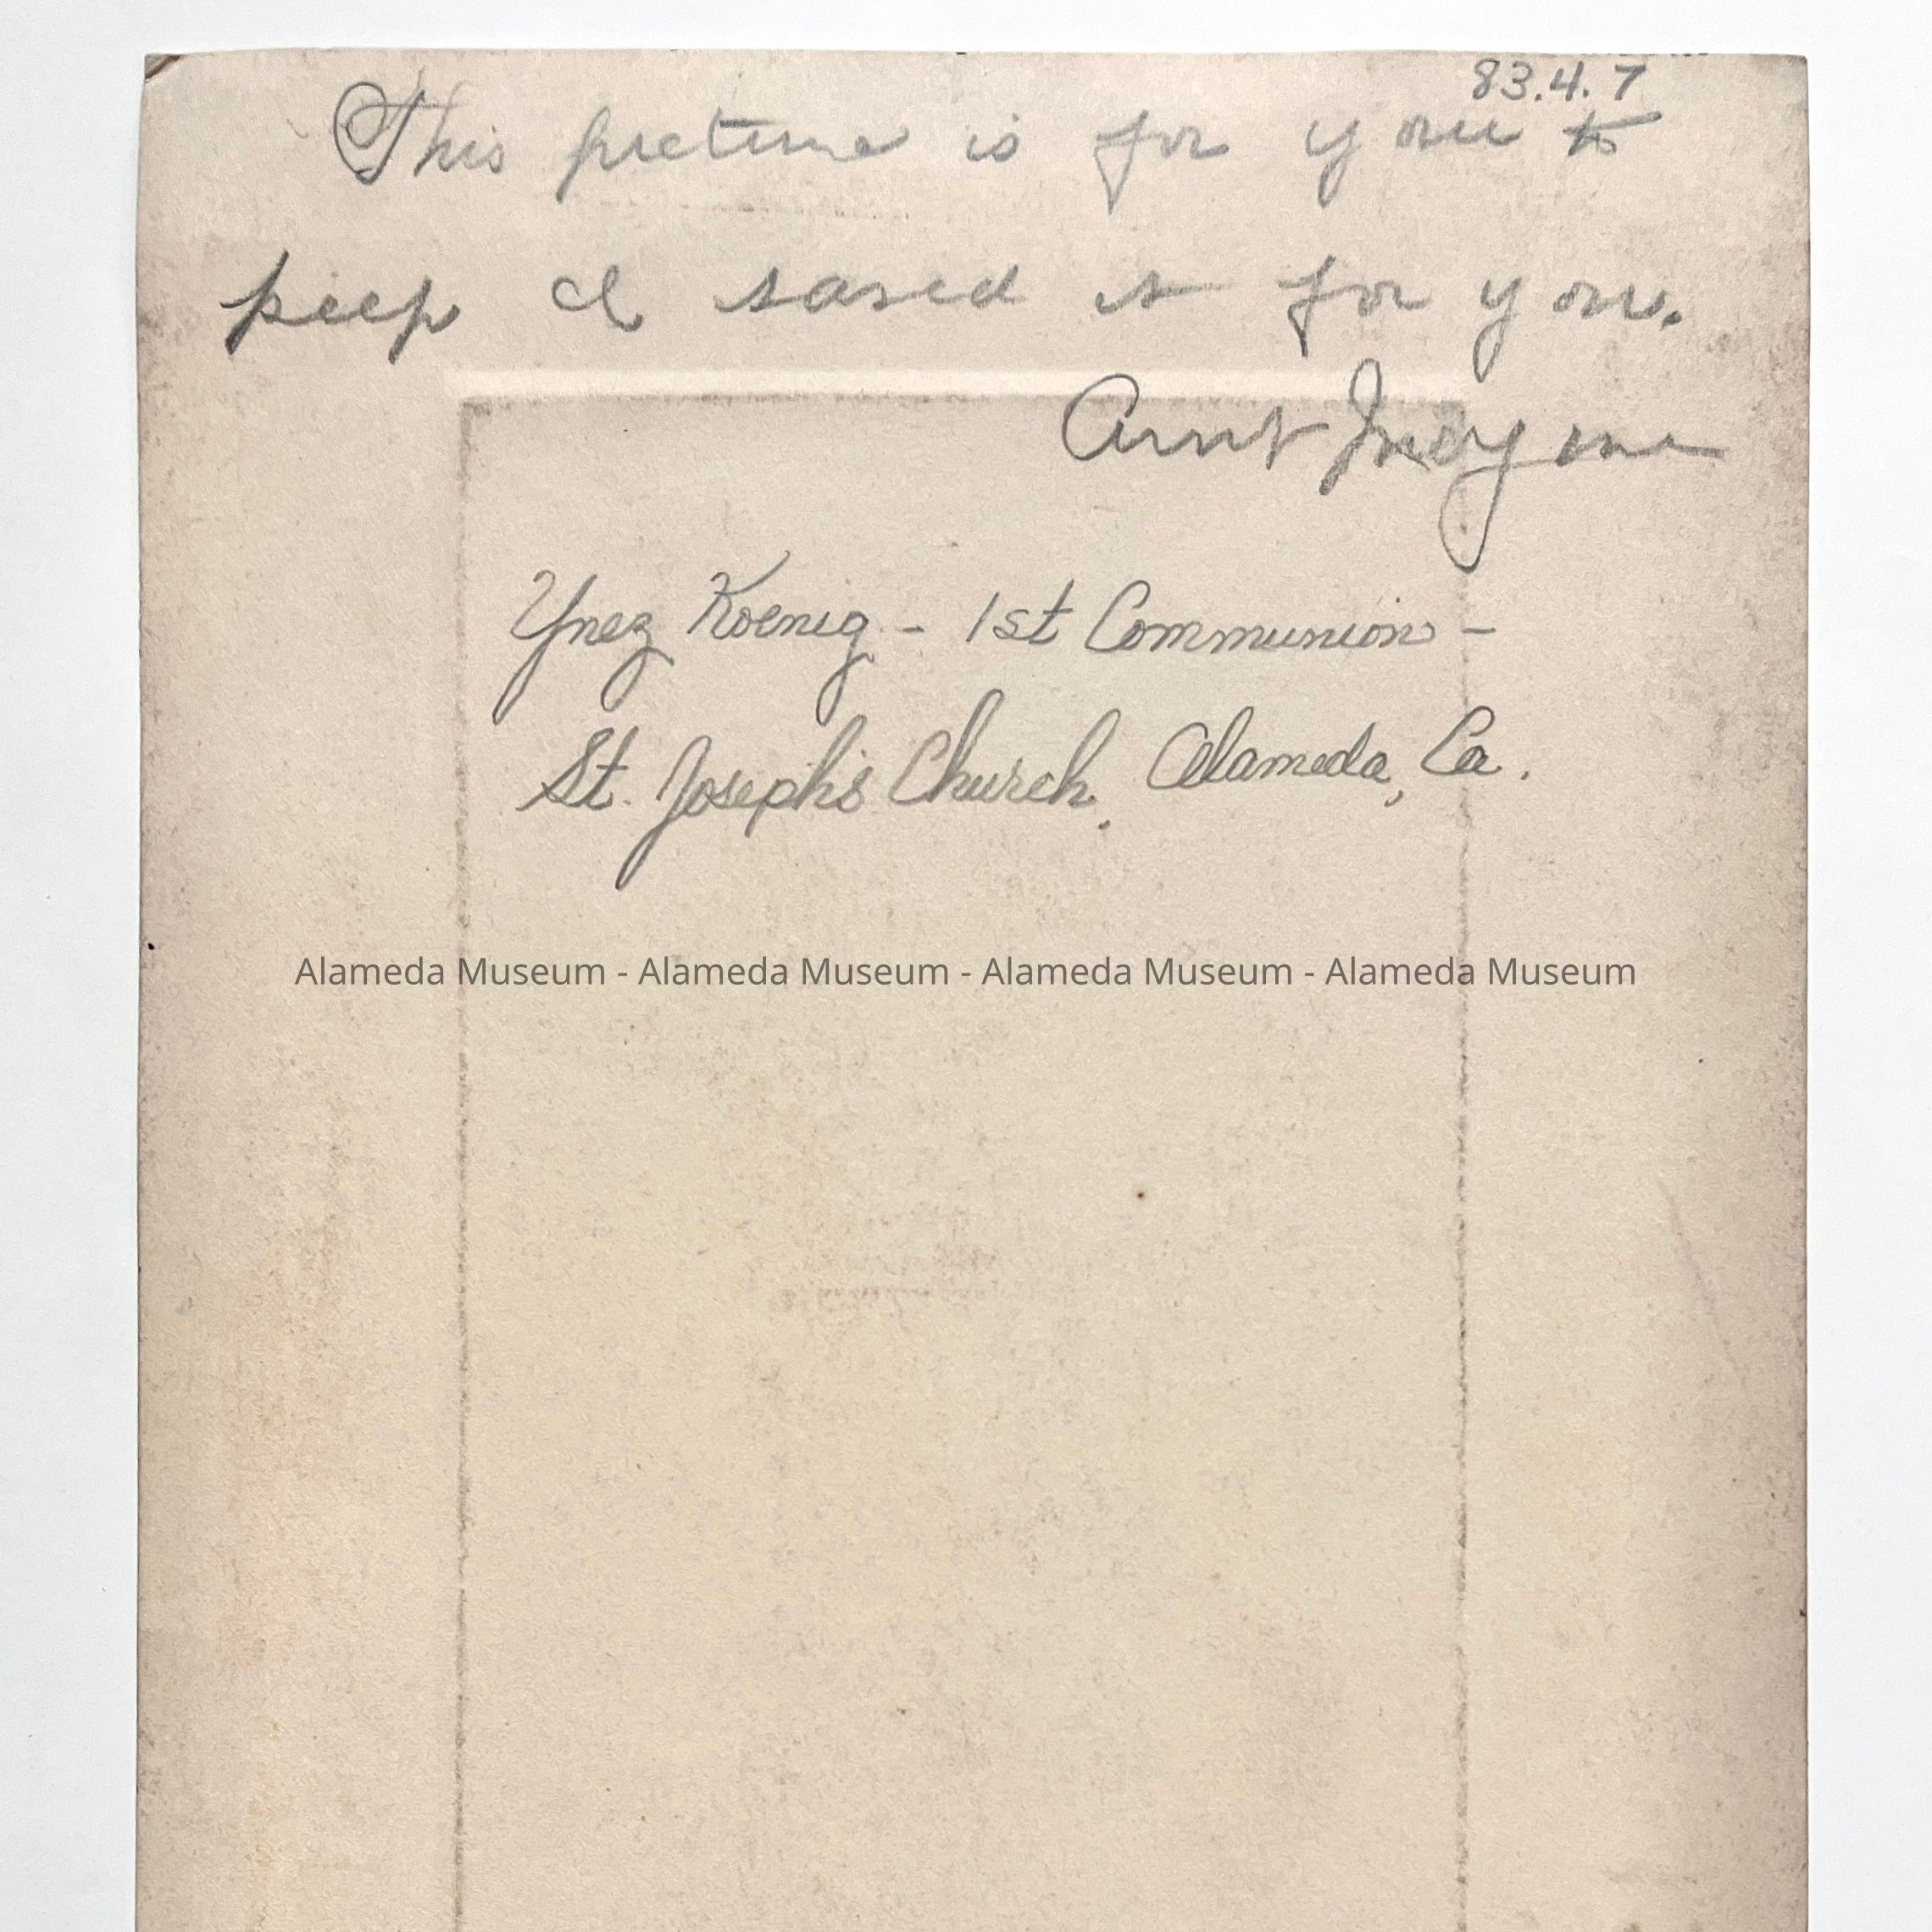 83.4.7
This picture is for you to
keep I saved it for you.
Aunt
Ynez Koenig - 1st Communion -
St. Joseph's Church, Alameda, Ca.
Alameda Museum - Alameda Museum - Alameda Museum - Alameda Museum